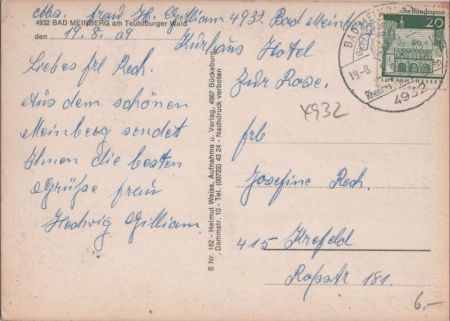 Abs. frau H. Gilliam 4932 Bad Meinberg
4932 BAD MEINBERG am Teutoburger Wald
den 19. 8. 69 Kurhaus Hotel
zur Rose.
Liebes frl Rech.
Aus dem schönen
Meinberg sendet
Ihnen die besten
Grüße frau
Hedwig Gilliam
S Nr. 182 - Helmut Weiss, Aufnahme u. Verlag, 4967 Bückeburg
Dammstr. 10 - Tel. (05722) 43 24 - Nachdruck verboten
Deutsche Bundespost
20
LORSCH/HESSEN
BAD MEINBERG
19.-8.
4932
4932
frl
Josefine Rech.
415 Krefeld
Roßstr 181.
6,-